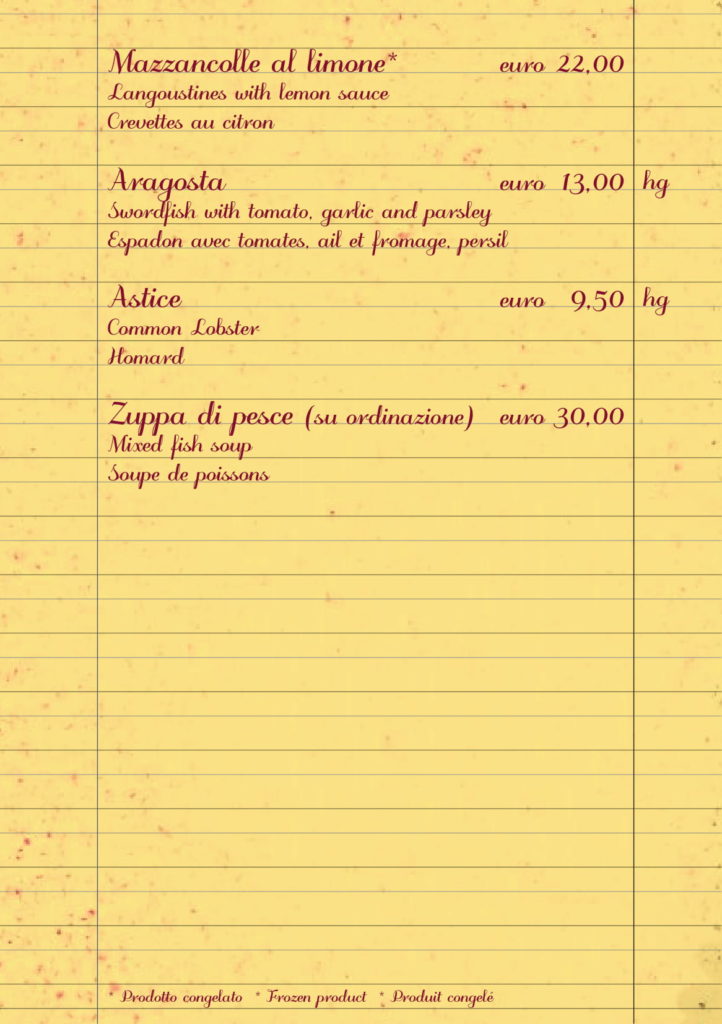 Mazzancolle al limone* euro 22,00
Langoustines with lemon sauce
Crevettes au citron
Aragosta euro 13,00 hg
Swordfish with tomato, garlic and parsley
Espadon avec tomates, ail et fromage, persil
Astice euro 9,50 hg
Common Lobster
Homard
Zuppa di pesce (su ordinazione) euro 30,00
Mixed fish soup
Soupe de poissons
* Prodotto congelato * Frozen product * Produit congelé